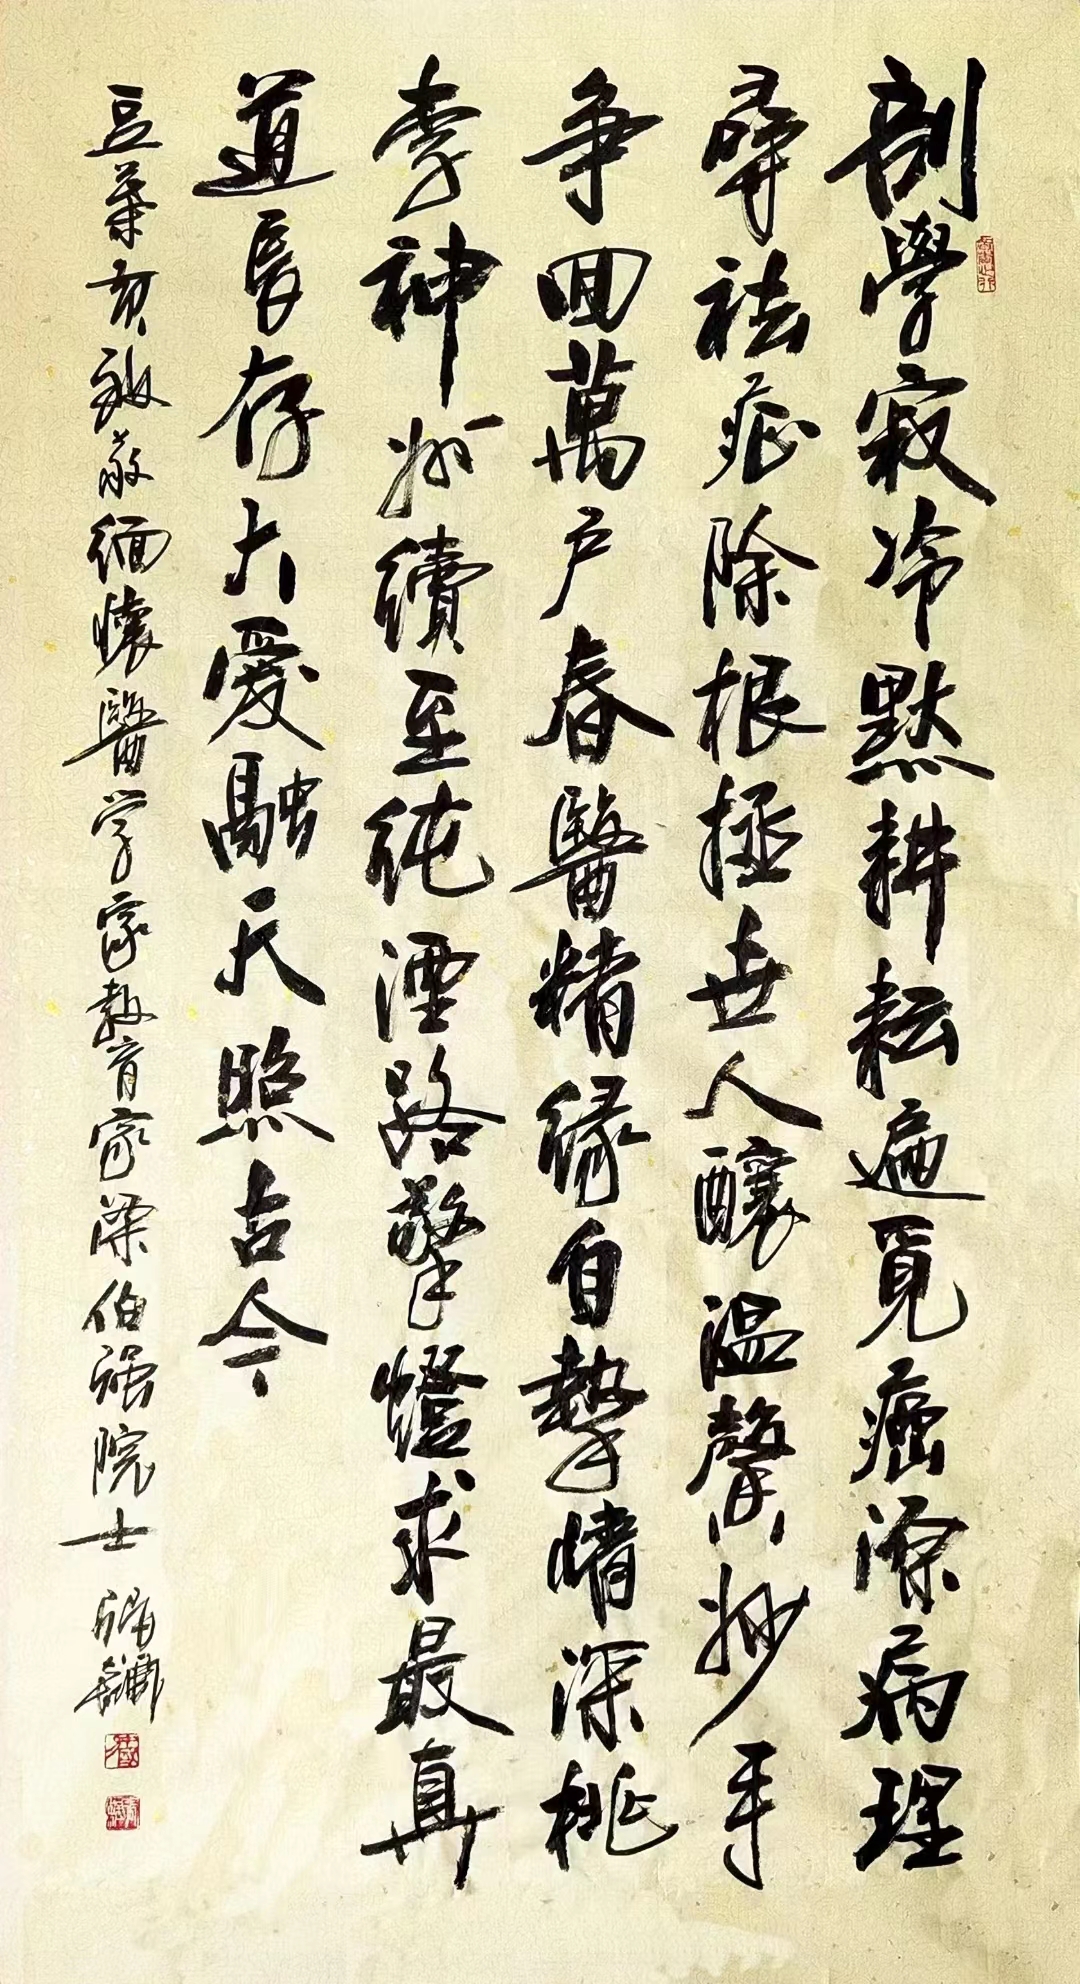 剖學寂冷默耕耘遍覓癌源病理
尋祛症除根拯世人釀溫馨妙手
争回萬户春醫精緣自摯情深桃
李神州續至純湮路擎燈求最真
道長存大愛融天照古今
葉敬敬緬懷醫学家教育家梁伯强院士